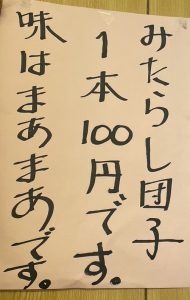 みたらし団子
1本100円です。
味はまあまあです。